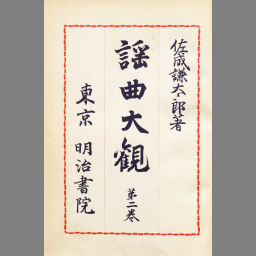 佐成謙太郎著
謡曲大観
第二巻
東京 明治書院